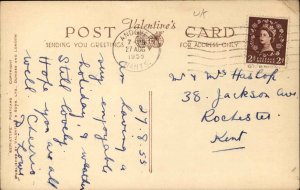 UK
POST CARD
Valentine's
SENDING YOU GREETINGS
FOR ADDRESS ONLY
ANDOVER
27 AUG
1955
27.8.55
Am having a
very enjoyable
holiday, & weather
Still lovely
Hope you are
well Cheerio
Mr & Mrs Haslop
38. Jackson Ave
Rochester.
Kent